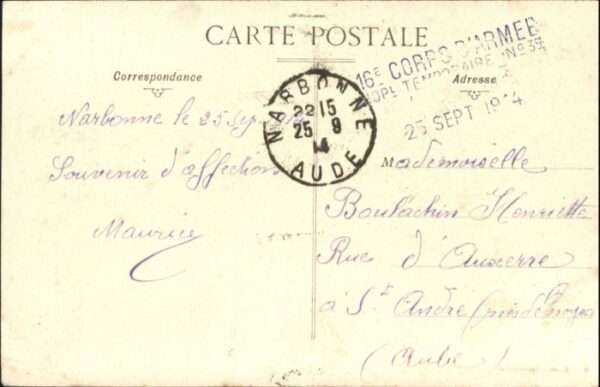 CARTE POSTALE
16e CORPS D'ARMEE
HOPL TEMPORAIRE No 34
25 SEPT 1914
Correspondance
Adresse
NARBONNE
22 15
25 9
14
AUDE
Narbonne le 25 Sep
Souvenir d'affection
Maurice
Mademoiselle
Boulachin Henriette
Rue d'Auxerre
à St André
(Aube)